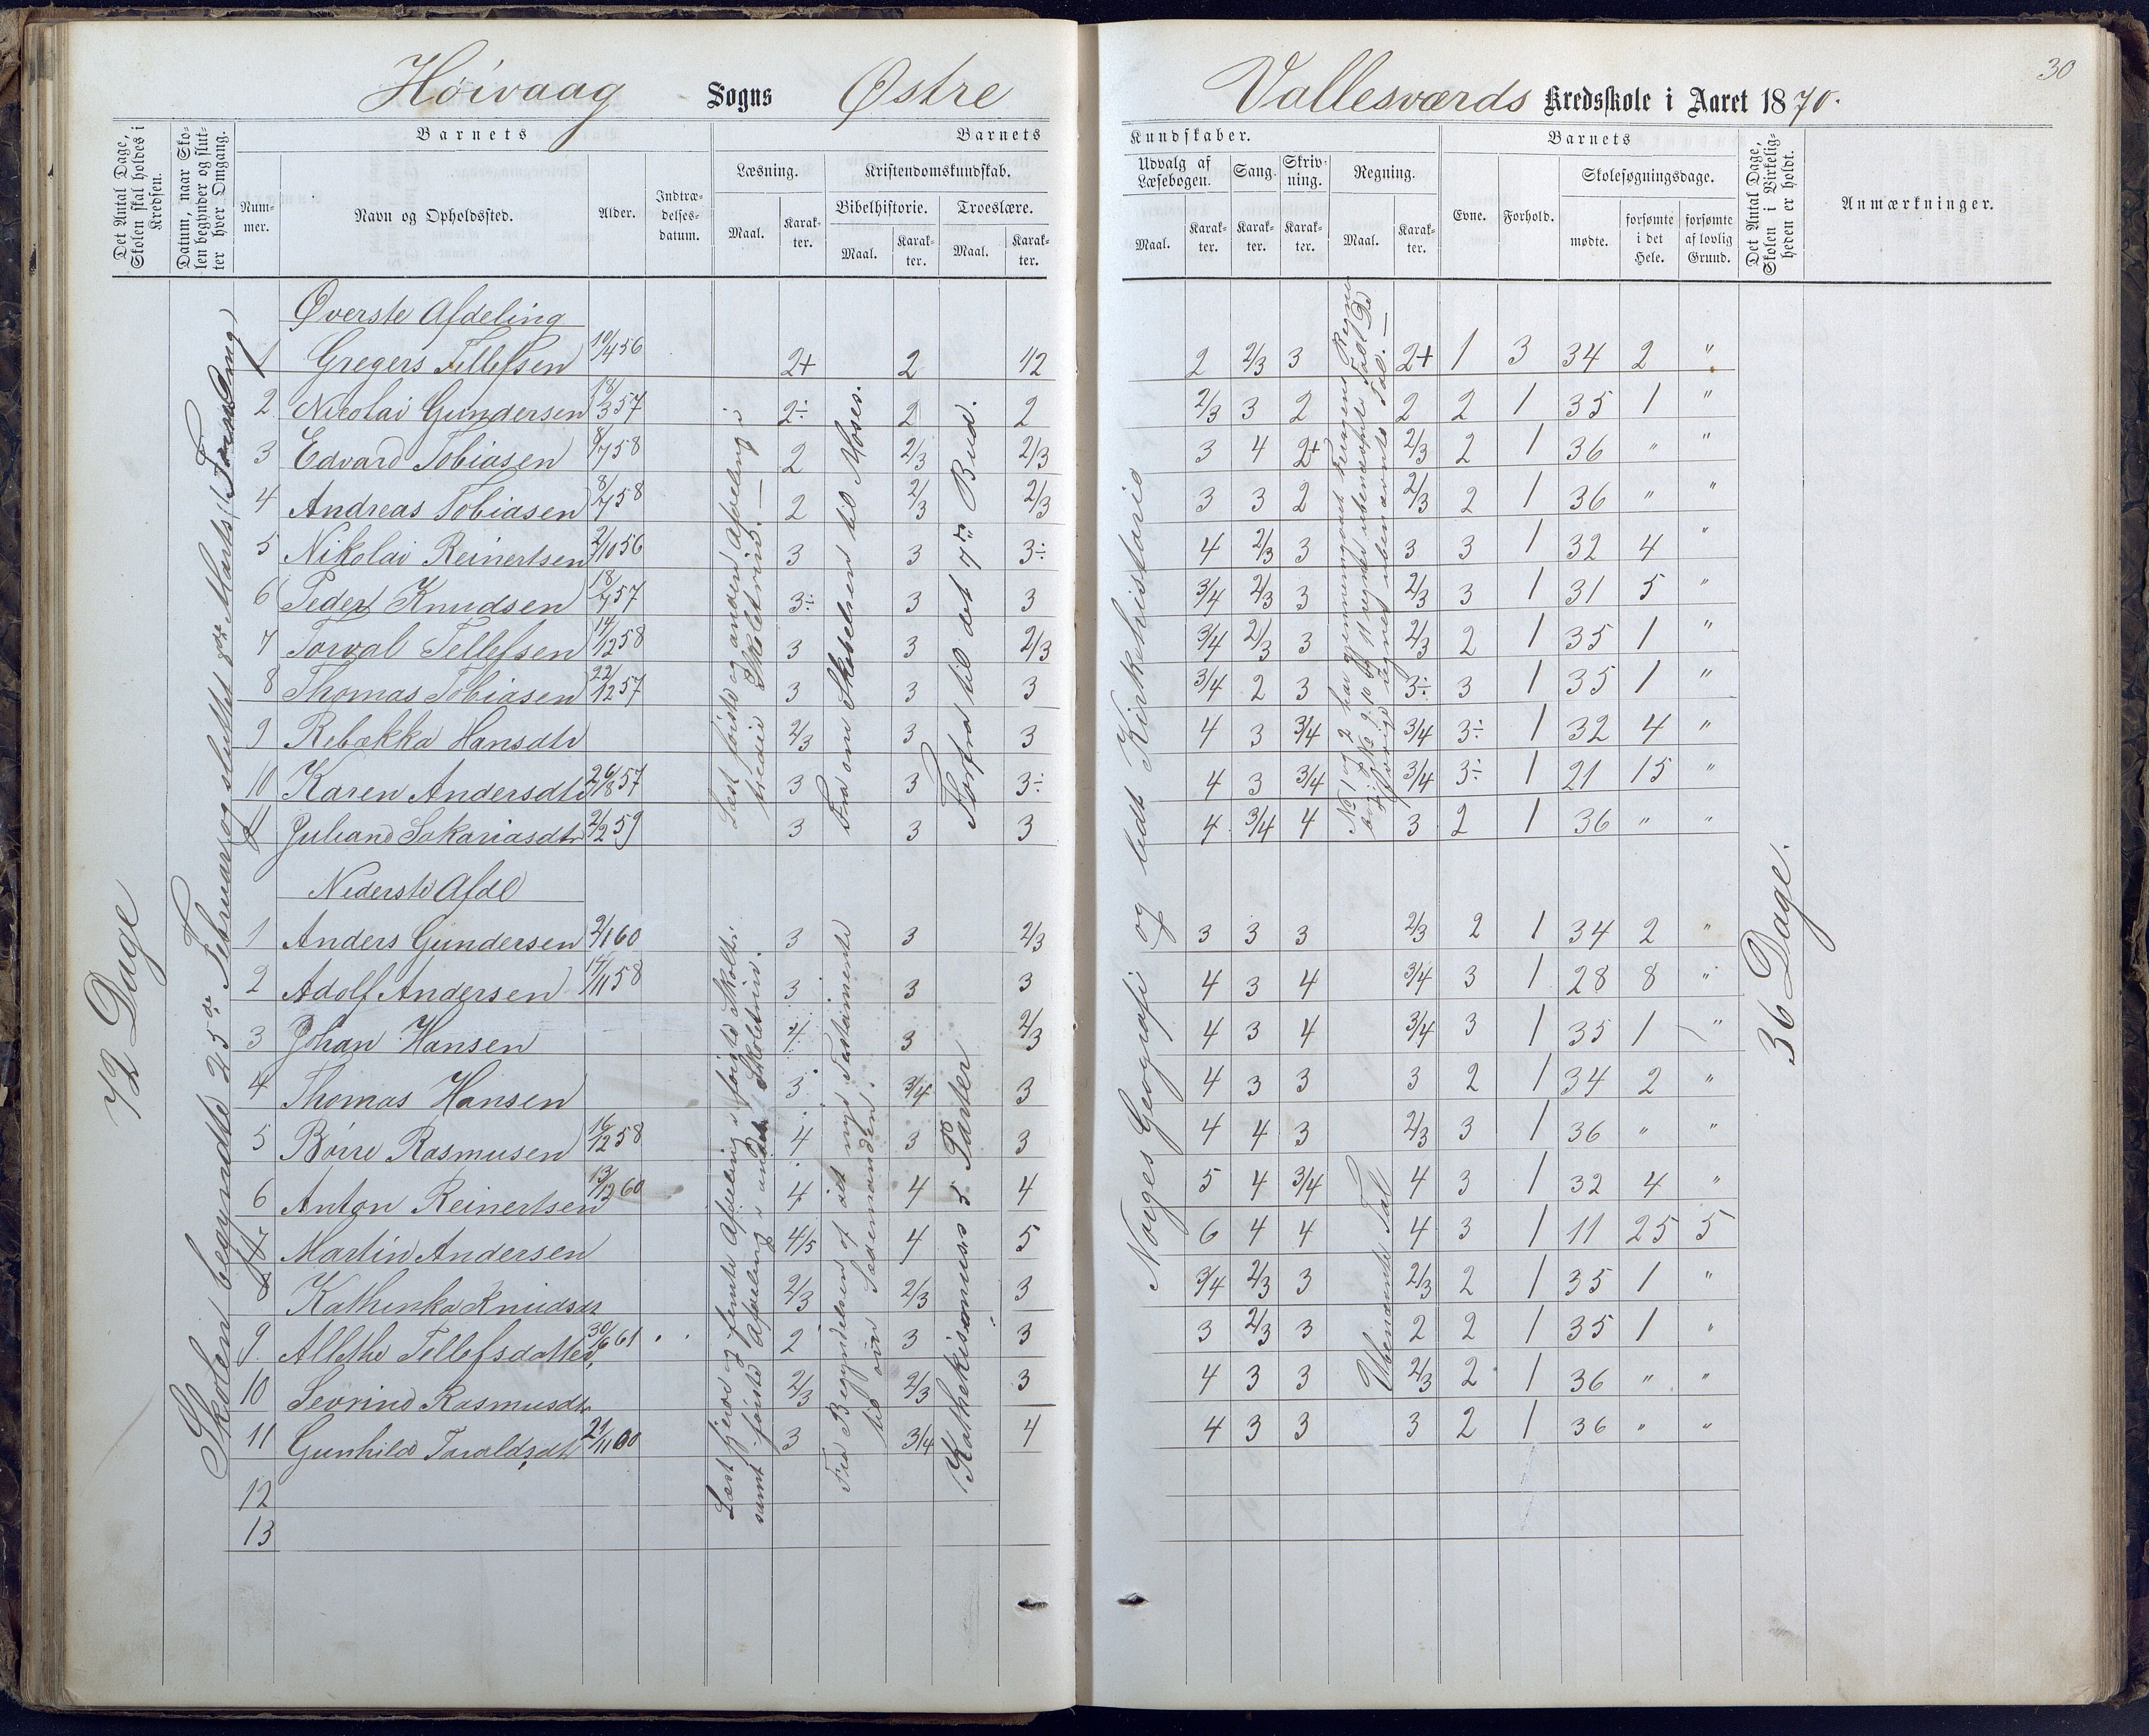 30
Høivaag Sogns Østre Vallesværds Kredsskole i Aaret 1870.
Det Antal Dage, Skolen skal holdes i Kredsen.
Datum, naar Skolen begynder og slutter hver Omgang.
Barnets
Nummer.
Navn og Opholdssted.
Alder.
Indtrædelsesdatum.
Barnets
Læsning.
Maal.
Karakter.
Kristendomskundskab.
Bibelhistorie.
Maal.
Karakter.
Troeslære.
Maal.
Karakter.
Kundskaber.
Udvalg af Læsebogen.
Maal.
Karakter.
Sang.
Karakter.
Skrivning.
Karakter.
Regning.
Maal.
Karakter.
Barnets
Evne.
Forhold.
Skolesøgningsdage.
mødte.
forsømte i det Hele.
forsømte af lovlig Grund.
Det Antal Dage, Skolen i Virkeligheden er holdt.
Anmærkninger.
72 Dage
Skolen begyndte 25de Februar og sluttet 8de Marts
Øverste Afdeling
1 Gregers Tellefsen 10/4 56 2+ 2 1/2 2 2/3 3 2+ 1 3 34 2 "
2 Nicolai Gundersen 18/3 57 2÷ 2 2 2/3 3 2 2 2 1 35 1 "
3 Edvard Tobiasen 8/7 58 2 2/3 2/3 3 4 2+ 2/3 2 1 36 " "
4 Andreas Tobiasen 8/7 58 2 2/3 2/3 3 3 2 2/3 2 1 36 " "
5 Nikolai Reinertsen 2/10 56 3 3 3÷ 4 2/3 3 3 3 1 32 4 "
6 Peder Knudsen 18/7 57 3÷ 3 3 3/4 2/3 3 2/3 3 1 31 5 "
7 Torval Tellefsen 14/12 58 3 3 2/3 3/4 2/3 3 2/3 2 1 35 1 "
8 Thomas Tobiasen 22/12 57 3 3 3 3/4 2 3 3÷ 3 1 35 1 "
9 Rebækka Hansdtr 2/3 3 3 4 3 3/4 3/4 3÷ 1 32 4 "
10 Karen Andersdtr 26/8 57 3 3 3÷ 4 3 3/4 3/4 3÷ 1 21 15 "
11 Juliane Sakariasdtr 2/2 59 3 3 3 4 3/4 4 3 2 1 36 " "
Læst første og anden Afdeling i tredie Skoletrin.
Fra om Skabelsen til Moses.
Forfra til det 7de Bud.
Norges Geografi og lidt Kirkehistorie
Nederste Afdl
1 Anders Gundersen 2/1 60 3 3 2/3 3 3 3 2/3 2 1 34 2 "
2 Adolf Andersen 14/11 58 3 3 3 4 3 4 3/4 3 1 28 8 "
3 Johan Hansen 4 3 2/3 4 3 4 3/4 3 1 35 1 "
4 Thomas Hansen 3 3/4 3 4 3 3 3 2 1 34 2 "
5 Børre Rasmusen 16/12 58 4 3 3 4 4 3 2/3 3 1 36 " "
6 Anton Reinertsen 13/12 60 4 4 4 5 4 3/4 4 3 1 32 4 "
Martin Andersen 4/5 4 5 6 4 4 4 3 1 11 25 5
Kathinka Knudsdt 2/3 2/3 3 3/4 2/3 3 2/3 2 1 35 1 "
9. Allethe Tellefsdatter 30/6 61 2 3 3 3 2/3 3 2 2 1 35 1 "
10 Sevrine Rasmusdtr 2/3 2/3 3 4 3 3 2/3 2 1 36 " "
11 Gunhild Taraldsdt 21/11 60 3 3/4 4 4 3 3 3 2 1 36 " "
12
13
Læst fjerde og femte Afdeling i første Skoletr. samt første Afdeling i andet Skoletrin.
Fra Begyndelsen af det nye Testamente til om Sædemanden.
Kathekismus 5 Parter
Ubenævnte Tal
36 Dage.